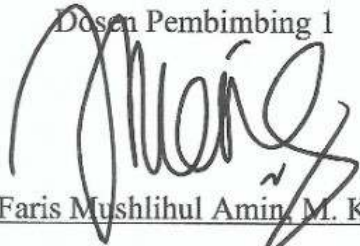 Dosen Pembimbing 1
Faris Mushlihul Amin, M. K